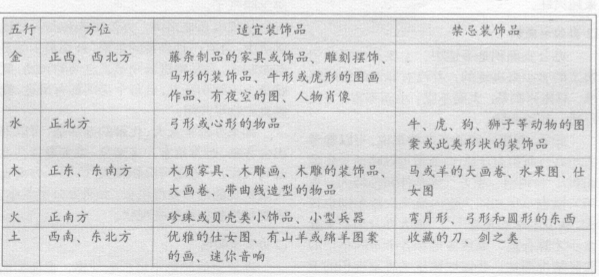 五行 方位 适宜装饰品 禁忌装饰品
金 正西、西北方 藤条制品的家具或饰品、雕刻摆饰、
马形的装饰品、牛形或虎形的图画
作品、有夜空的图、人物肖像
水 正北方 弓形或心形的物品 牛、虎、狗、狮子等动物的图
案或此类形状的装饰品
木 正东、东南方 木质家具、木雕画、木雕的装饰品、 马或羊的大画卷、水果图、仕
大画卷、带曲线造型的物品 女图
火 正南方 珍珠或贝壳类小饰品、小型兵器 弯月形、弓形和圆形的东西
土 西南、东北方 优雅的仕女图、有山羊或绵羊图案 收藏的刀、剑之类
的画、迷你音响